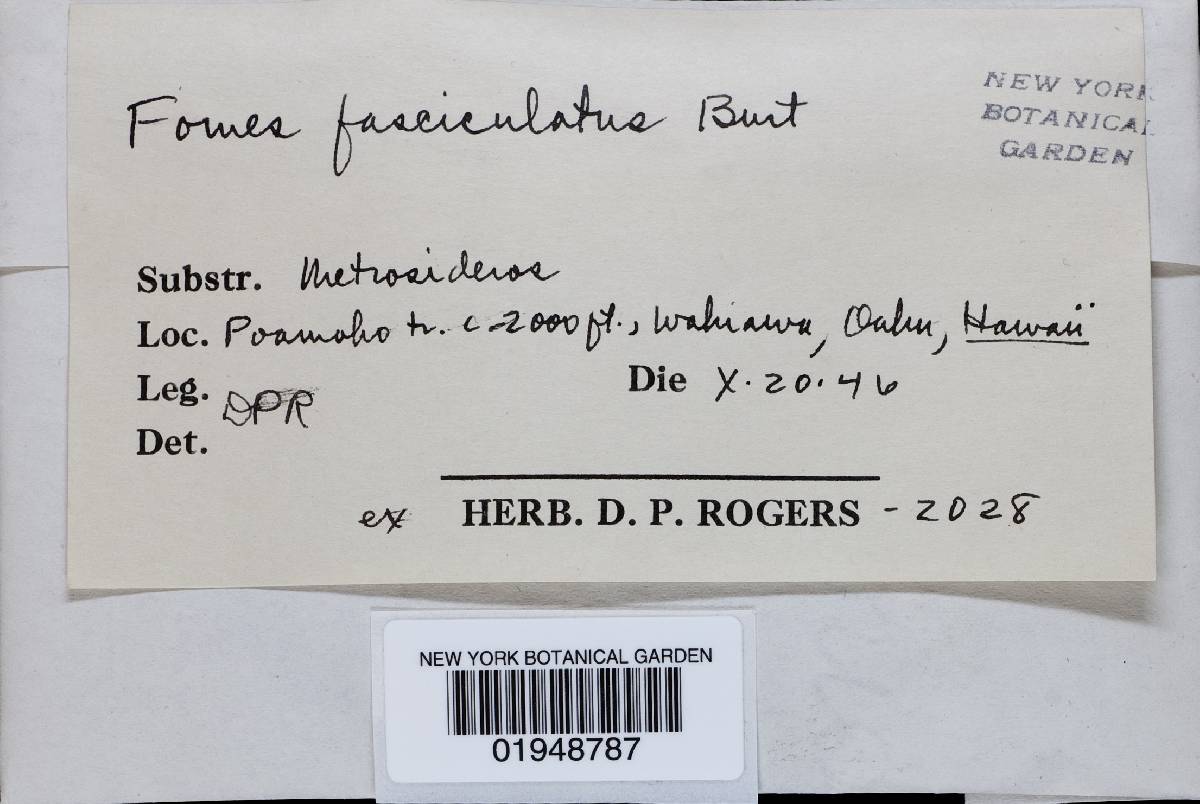 Fomes fasciculatus Burt
NEW YORK
BOTANICAL
GARDEN
Substr. Metrosideros
Loc. Poamoho tr. c. 2000 ft., Wahiawa, Oahu, Hawaii
Leg. DPR Die X.20.46
Det.
ex HERB. D. P. ROGERS - 2028
NEW YORK BOTANICAL GARDEN
01948787